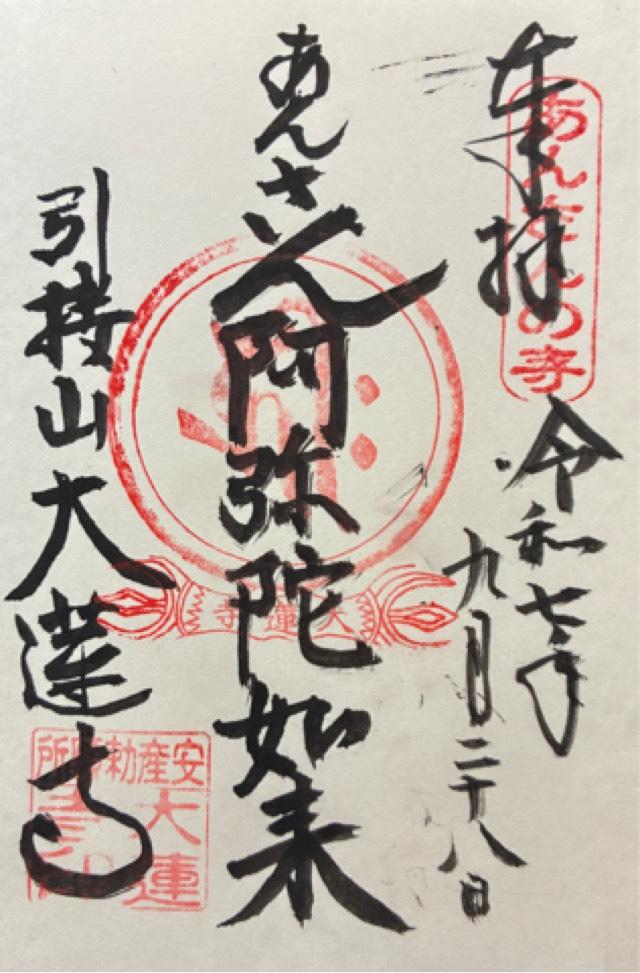 奉拝
あんざんの寺
令和七年
九月二十八日
あんざん
阿弥陀如来
大蓮寺
引接山大蓮寺
安産勅願所
大蓮